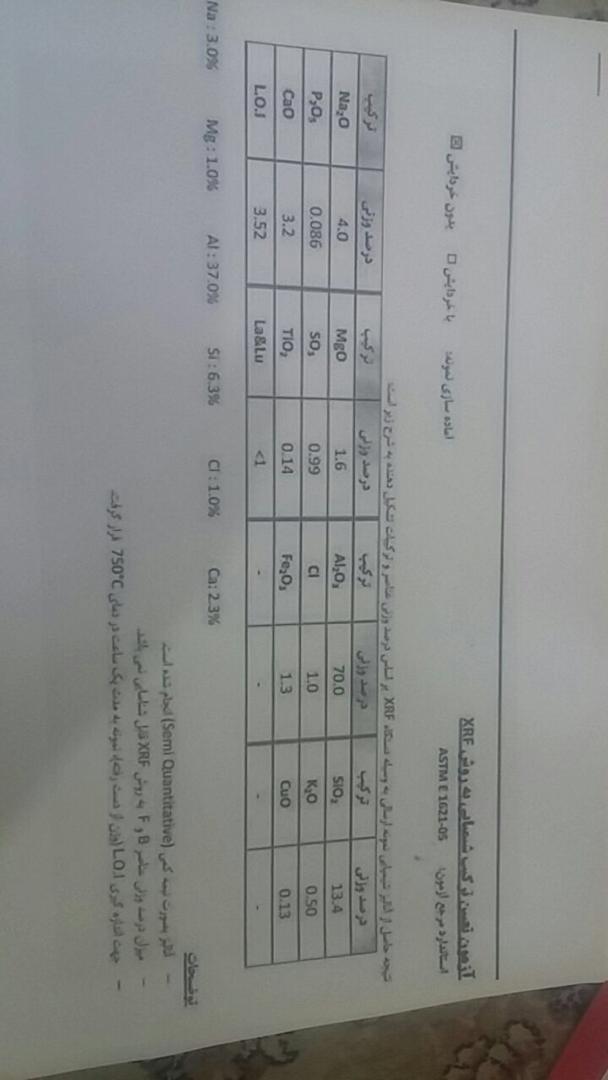 آزمون تعیین ترکیب شیمیایی به روش XRF
استاندارد مرجع آزمون: ASTM E 1621-05
آماده سازی نمونه: با خردایش ☐ بدون خردایش ☒
نتیجه حاصل از آنالیز شیمیایی نمونه ارسالی به وسیله دستگاه XRF بر اساس درصد وزنی عناصر و ترکیبات تشکیل دهنده به شرح زیر است:
ترکیب درصد وزنی ترکیب درصد وزنی ترکیب درصد وزنی ترکیب درصد وزنی
Na₂O 4.0 MgO 1.6 Al₂O₃ 70.0 SiO₂ 13.4
P₂O₅ 0.086 SO₃ 0.99 Cl 1.0 K₂O 0.50
CaO 3.2 TiO₂ 0.14 Fe₂O₃ 1.3 CuO 0.13
L.O.I 3.52 La&Lu <1 - - - -
Na : 3.0% Mg : 1.0% Al : 37.0% Si : 6.3% Cl : 1.0% Ca: 2.3%
توضیحات
- آنالیز بصورت نیمه کمی (Semi Quantitative) انجام شده است.
- میزان درصد وزنی عناصر B و F به روش XRF قابل شناسایی نمی باشد.
- جهت اندازه گیری L.O.I (وزن از دست رفته)، نمونه به مدت یک ساعت در دمای 750°C قرار گرفت.